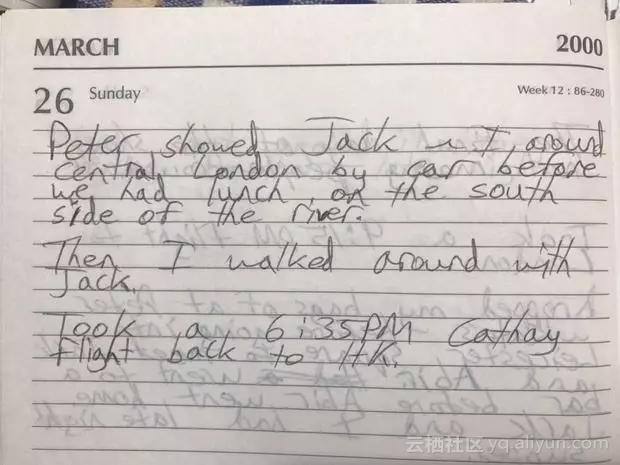 MARCH 2000
26 Sunday Week 12 : 86-280
Peter showed Jack n I around
central London by car before
we had lunch on the south
side of the river.
Then I walked around with
Jack.
Took a 6:35PM Cathay
flight back to HK.
云栖社区 yq.aliyun.com